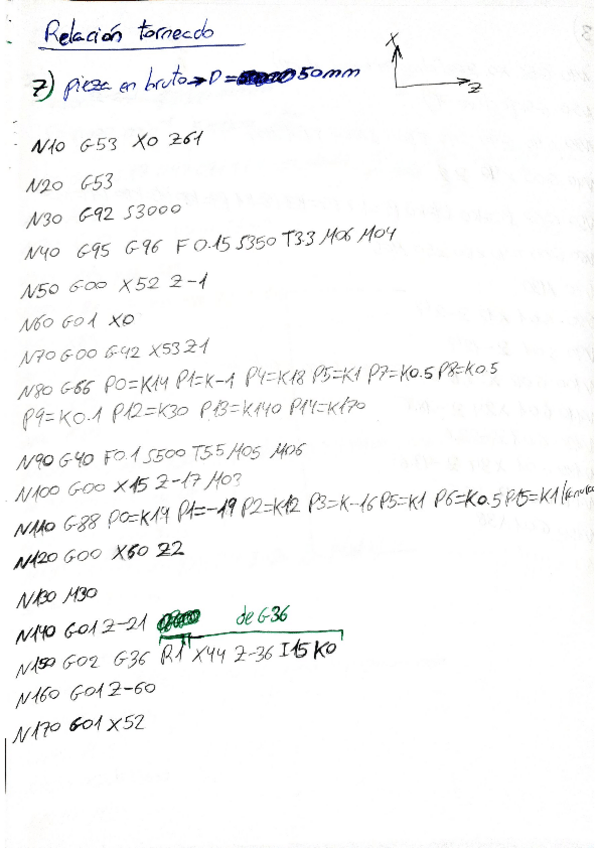 Relación torneado
7) pieza en bruto → D = 50mm
X
Z
N10 G53 X0 Z61
N20 G53
N30 G92 S3000
N40 G95 G96 F0.15 S350 T3.3 M06 M04
N50 G00 X52 Z-1
N60 G01 X0
N70 G00 G42 X53 Z1
N80 G66 P0=K14 P1=K-1 P4=K18 P5=K1 P7=K0.5 P8=K0.5
P9=K0.1 P12=K30 P13=K140 P14=K170
N90 G40 F0.1 S500 T5.5 M05 M06
N100 G00 X15 Z-17 M03
N110 G88 P0=K14 P1=-19 P2=K12 P3=K-16 P5=K1 P6=K0.5 P15=K1
N120 G00 X60 Z2
N130 M30
N140 G01 Z-21 de G36
N150 G02 G36 R1 X44 Z-36 I15 K0
N160 G01 Z-60
N170 G01 X52